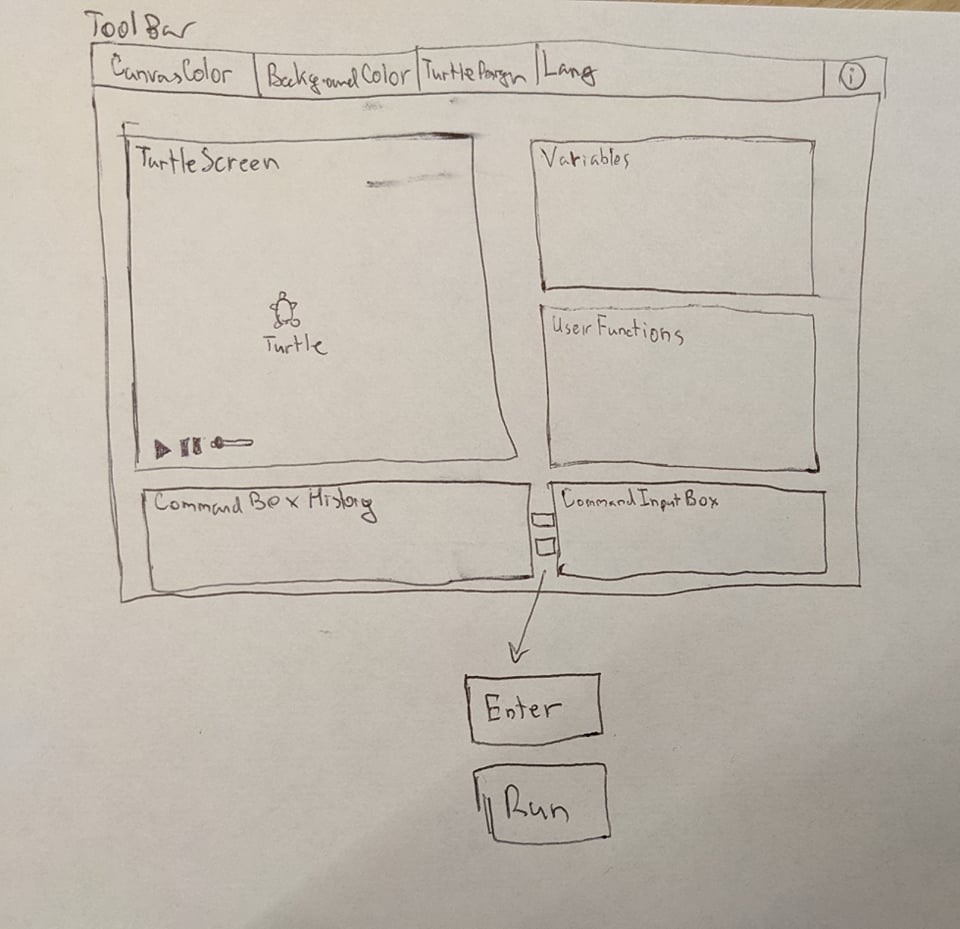 ToolBar
CanvasColor
BackgroundColor
Turtle
Lang
i
TurtleScreen
Variables
Turtle
User Functions
Command Box History
CommandInputBox
Enter
Run